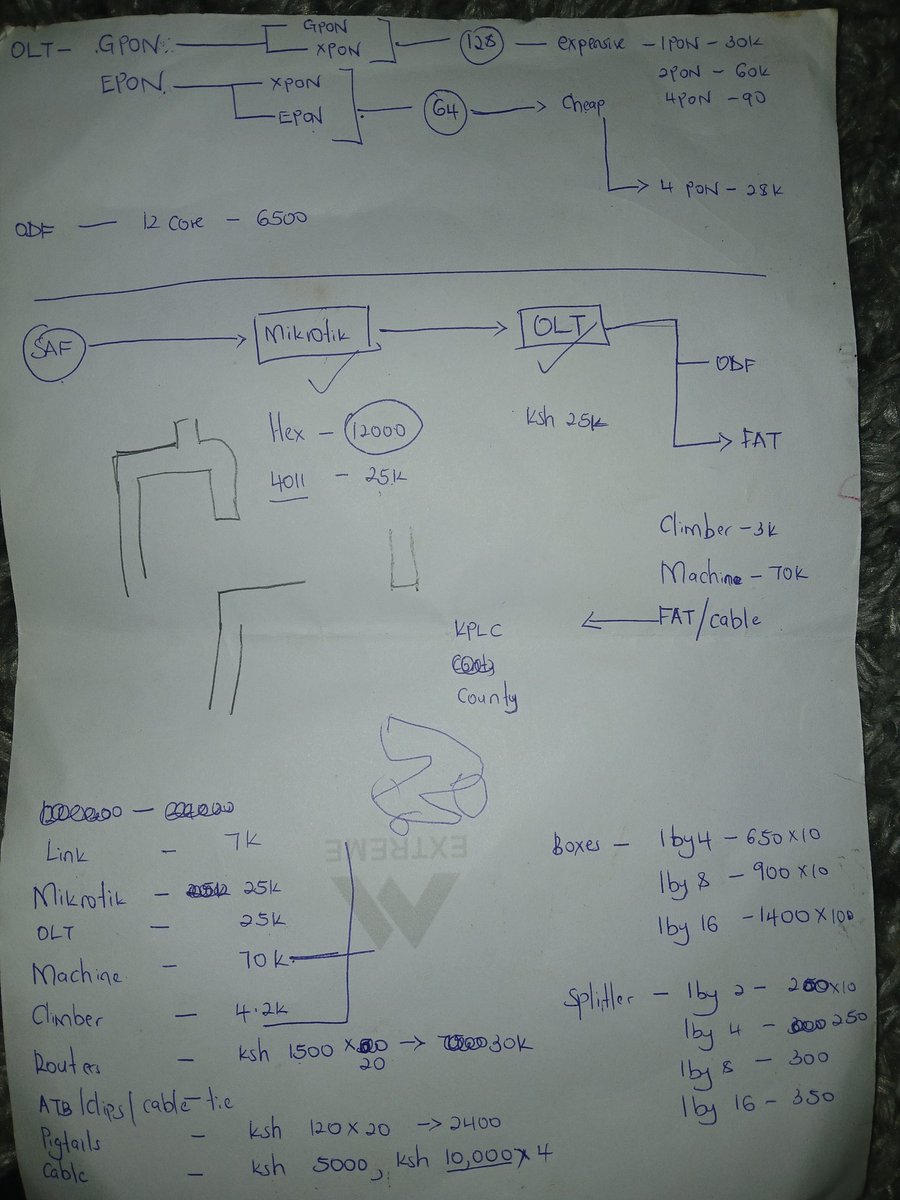 OLT - GPON GPON
XPON 128 - expensive - 1PON - 30K
EPON XPON 2PON - 60K
EPON 64 → cheap 4PON - 90
→ 4 PON - 28K
ODF - 12 Core - 6500
SAF → Mikrotik → OLT
ODF
FAT
Hex - 12000
Ksh 25K
4011 - 25K
Climber - 3K
Machine - 70K
← FAT/cable
KPLC
County
EXTREME
Link - 7K
Mikrotik - 25K
OLT - 25K
Machine - 70K
Climber - 4.2K
Routers - Ksh 1500 x 20 → 30K
ATB/clips/cable-tie
Pigtails - Ksh 120 x 20 → 2400
Cable - Ksh 5000, Ksh 10,000 x 4
Boxes - 1by4 - 650 x 10
1by 8 - 900 x 10
1by 16 - 1400 x 100
Splitter - 1by 2 - x10
1by 4 - 250
1by 8 - 300
1by 16 - 350